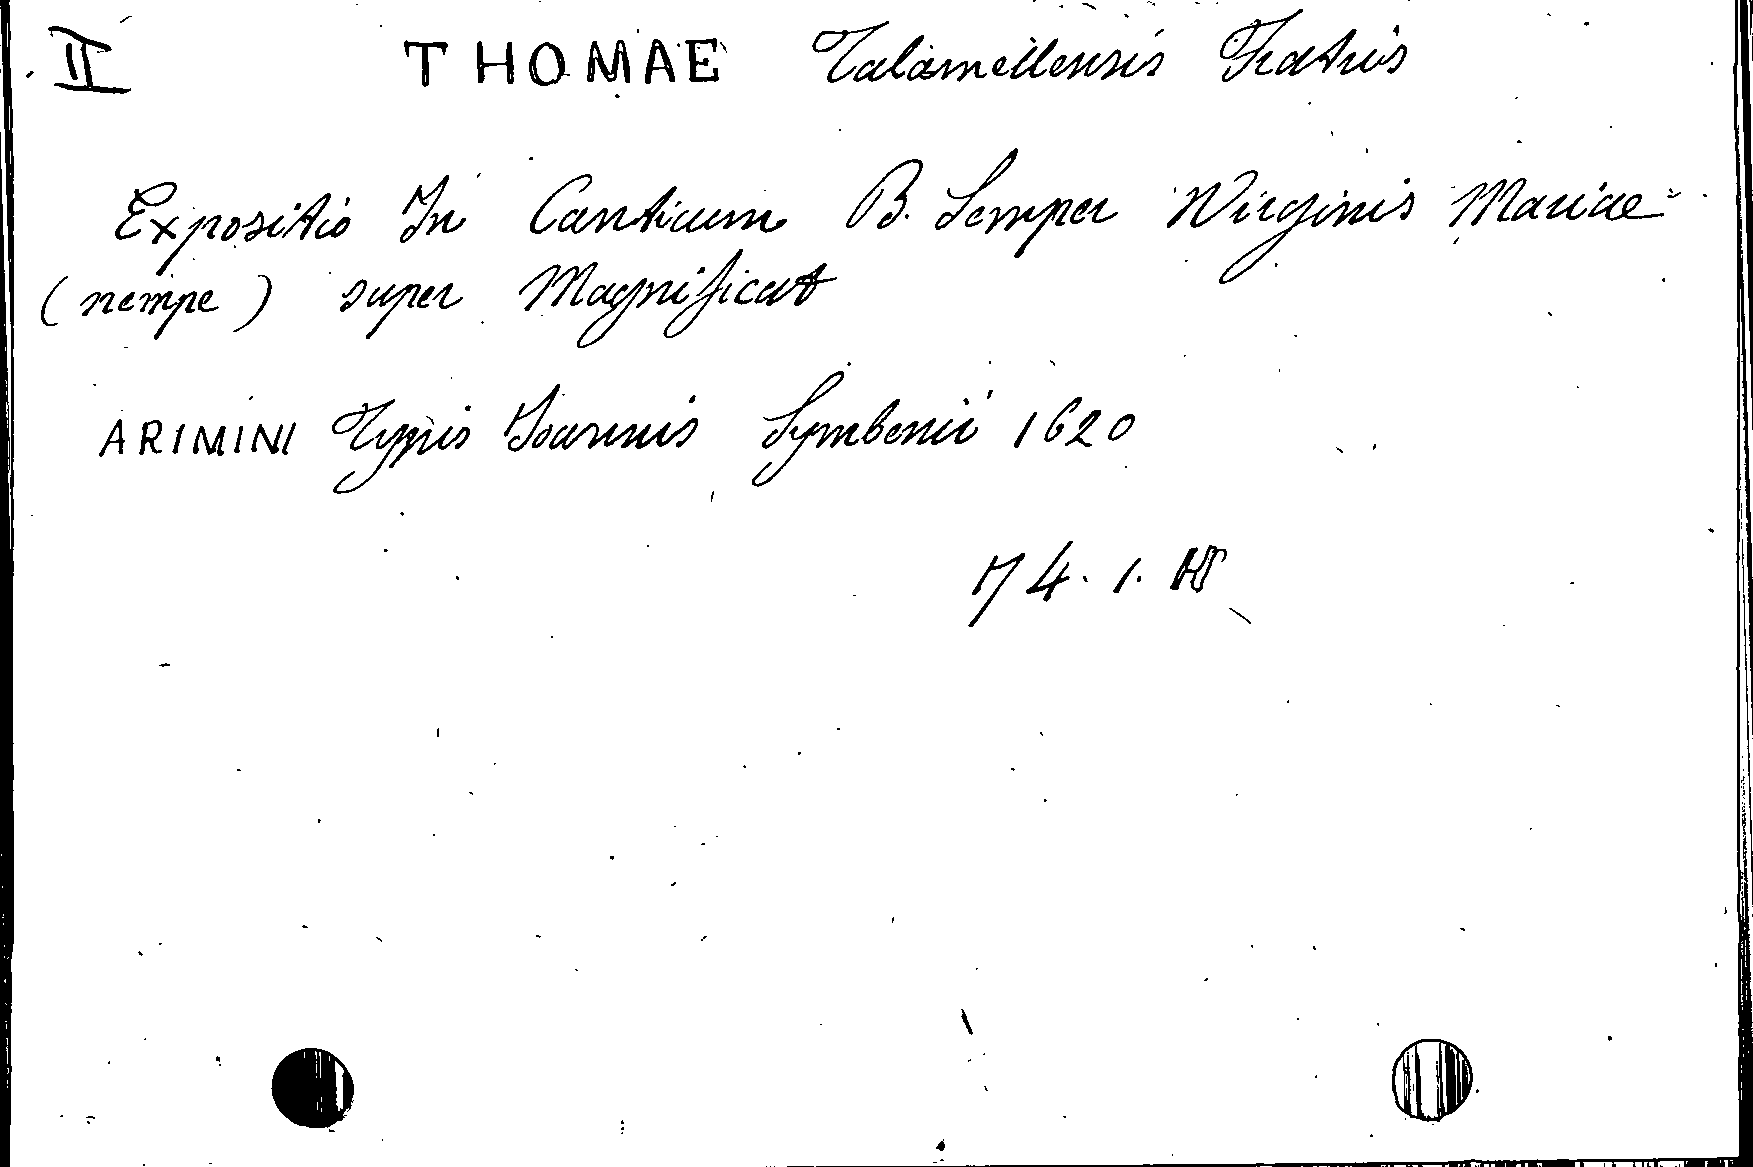 II THOMAE Talamellensis Fratris
Expositio In Canticum B. Semper Virginis Mariae
(nempe) super Magnificat
ARIMINI Typis Ioannis Symbenii 1620
74. 1.